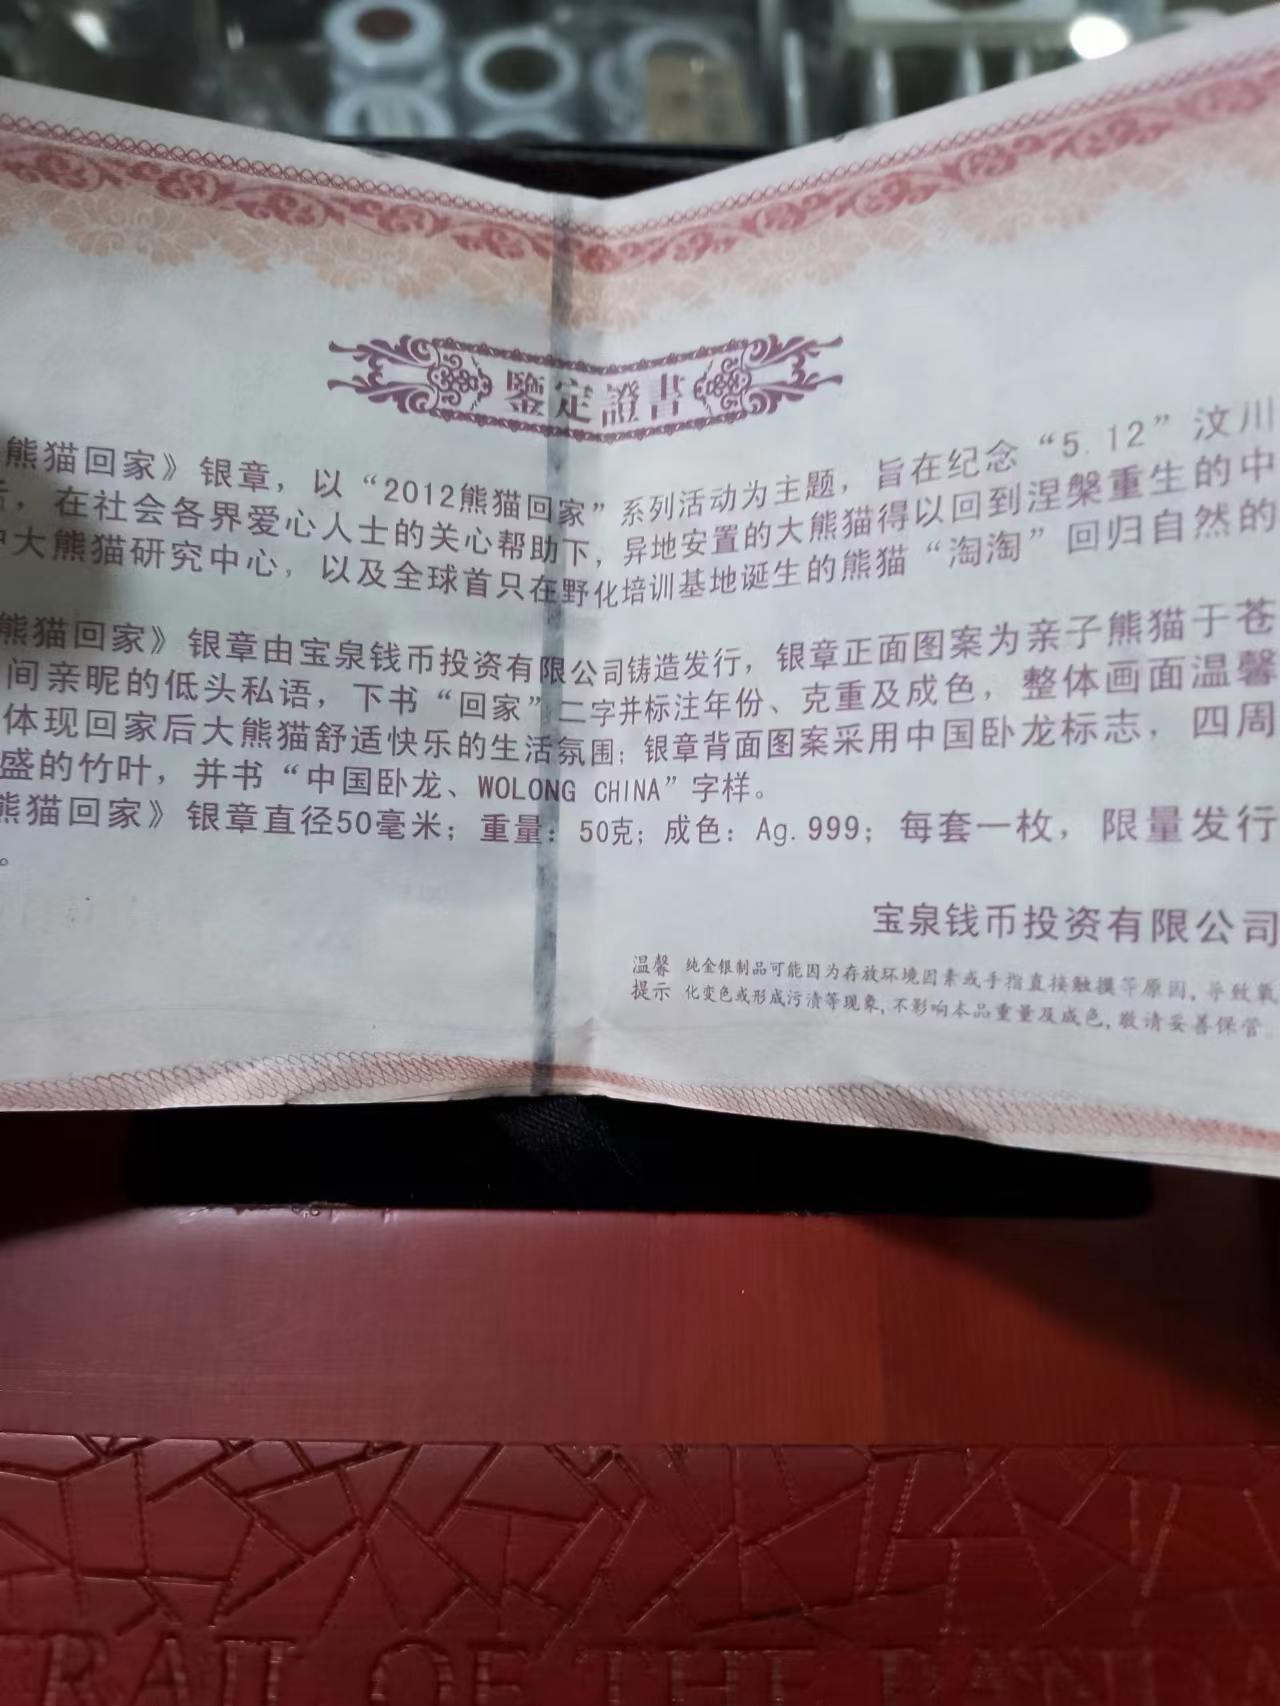 鑒定證書
熊猫回家》银章，以“2012熊猫回家”系列活动为主题，旨在纪念“5.12”汶川
，在社会各界爱心人士的关心帮助下，异地安置的大熊猫得以回到涅槃重生的中
大熊猫研究中心，以及全球首只在野化培训基地诞生的熊猫“淘淘”回归自然的
熊猫回家》银章由宝泉钱币投资有限公司铸造发行，银章正面图案为亲子熊猫于苍
间亲昵的低头私语，下书“回家”二字并标注年份、克重及成色，整体画面温馨
体现回家后大熊猫舒适快乐的生活氛围；银章背面图案采用中国卧龙标志，四周
盛的竹叶，并书“中国卧龙、WOLONG CHINA”字样。
熊猫回家》银章直径50毫米；重量：50克；成色：Ag.999；每套一枚，限量发行
。
宝泉钱币投资有限公司
温馨提示 纯金银制品可能因为存放环境因素或手指直接触摸等原因，导致氧
化变色或形成污渍等现象，不影响本品重量及成色，敬请妥善保管。
TRAIL OF THE PANDA